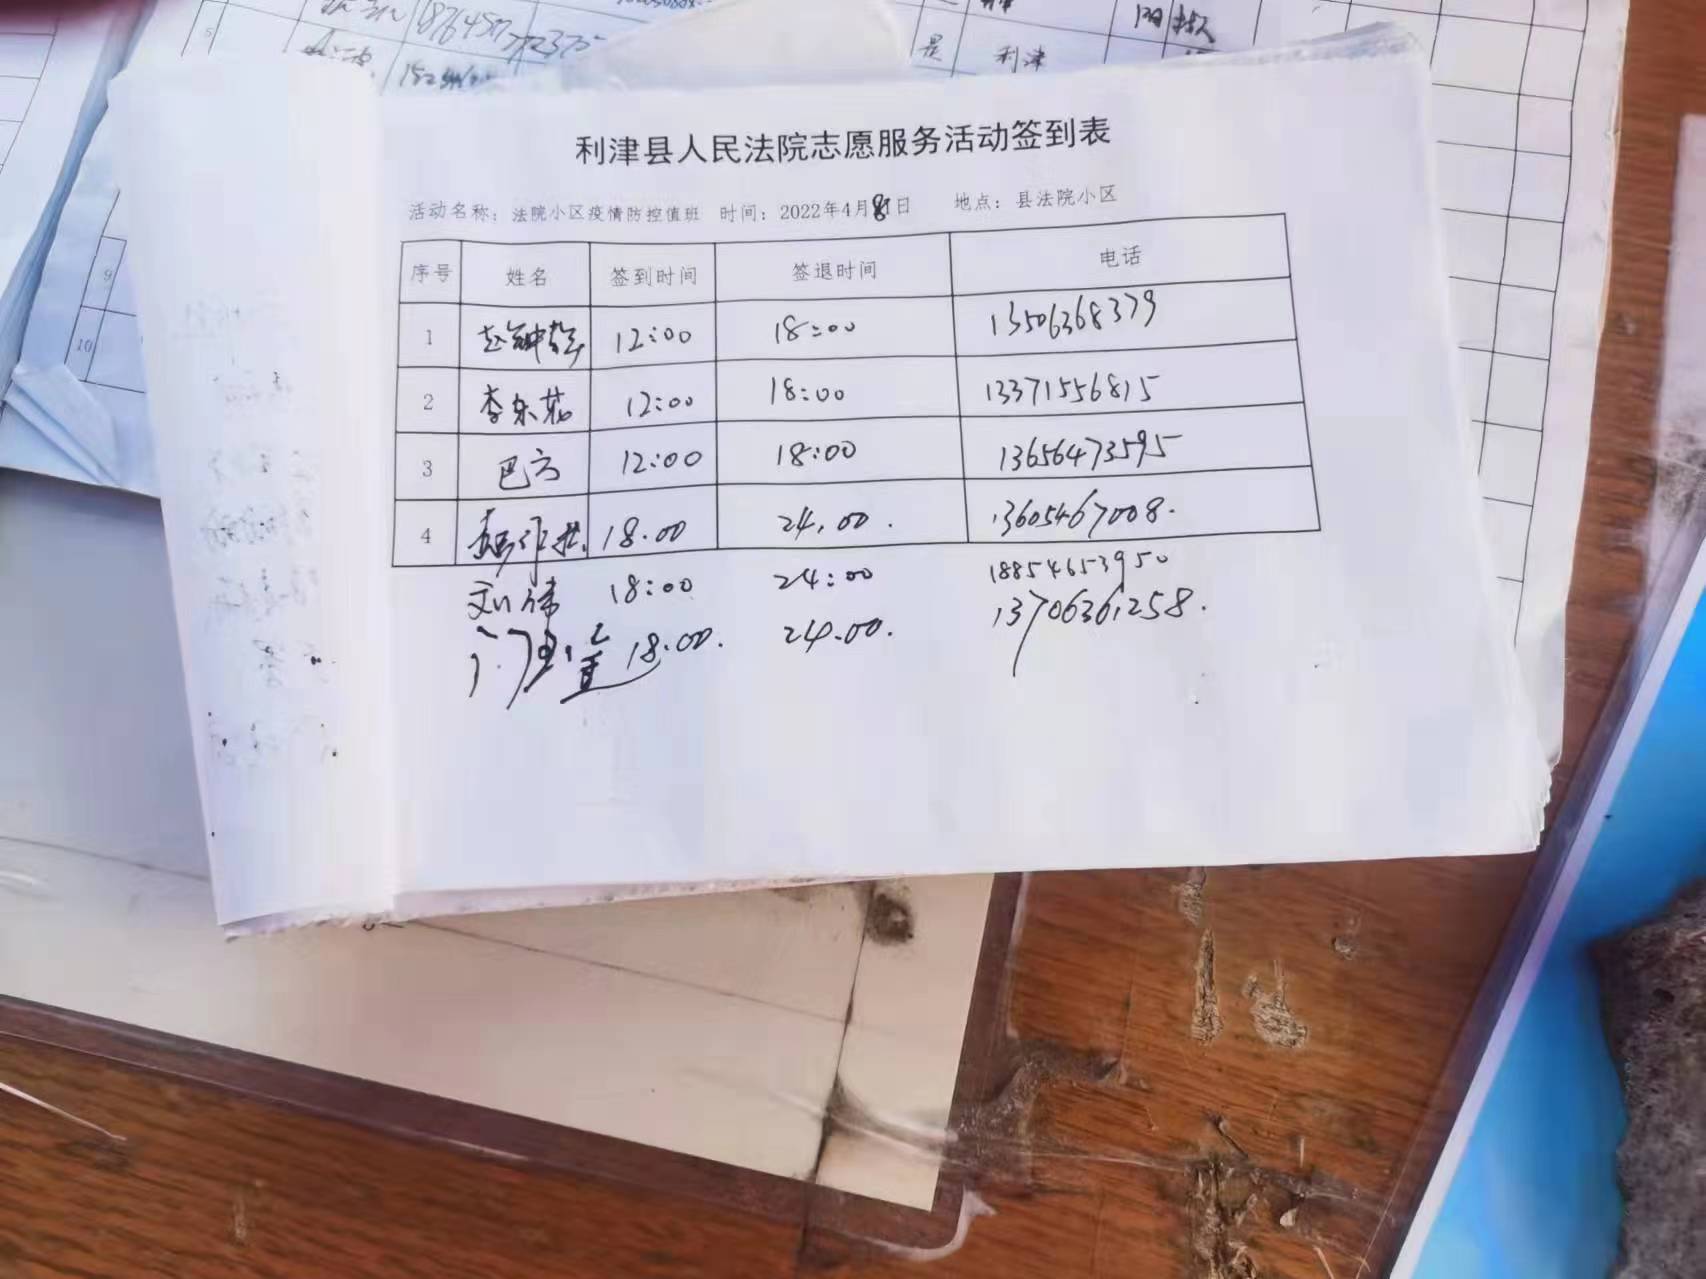 利津县人民法院志愿服务活动签到表
活动名称：法院小区疫情防控值班 时间：2022年4月8日 地点：县法院小区
序号 姓名 签到时间 签退时间 电话
1 12:00 18:00 13506368379
2 李东茹 12:00 18:00 13371556815
3 巴方 12:00 18:00 13656473595
4 18.00 24.00. 13605467008.
刘伟 18:00 24:00 18854653950
18.00. 24.00. 13706361258.
5
是 利津
9
10